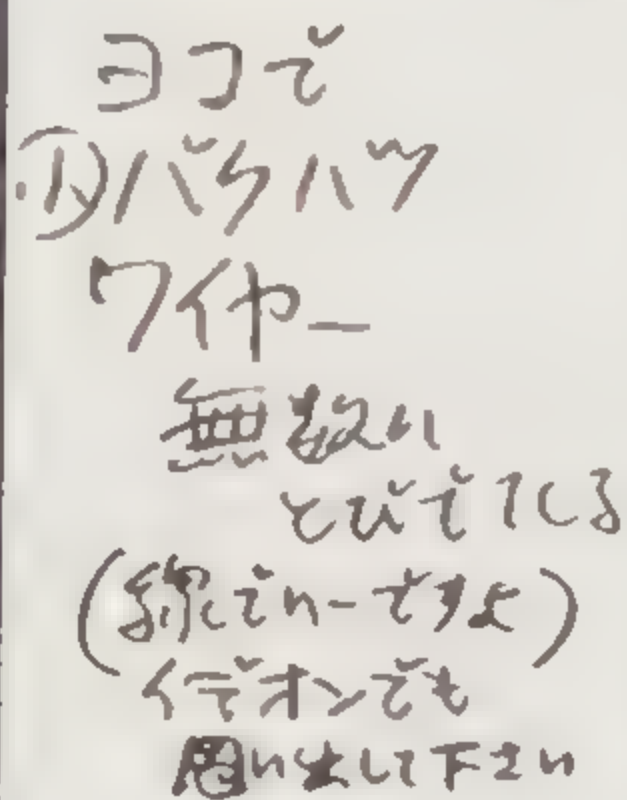 ヨコで
①バクハツ
ワイヤー
無数に
とびでてくる
(線でいーですよ)
イデオンでも
思い出して下さい